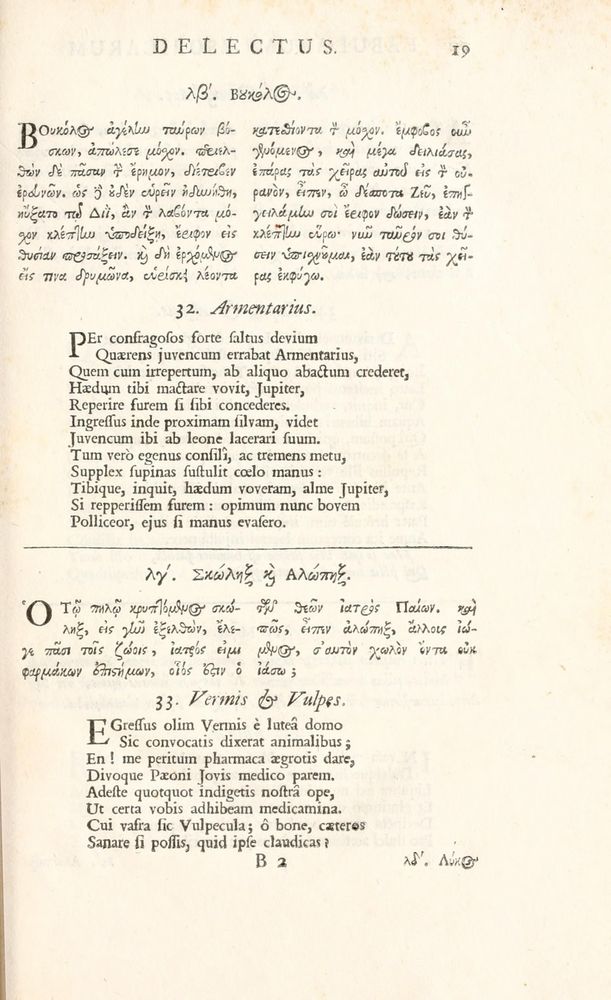 DELECTUS. 19
λβ'. Βουκόλος.
Βουκόλος ἀγέλην ταύρων βό-
σκων, ἀπώλεσε μόσχον. περιελ-
θὼν δὲ πᾶσαν τὴν ἔρημον, διέτριβεν
ἐρευνῶν. ὡς δὲ οὐδὲν εὑρεῖν ἠδυνήθη,
ηὔξατο τῷ Διῒ, ἂν τὸν λαβόντα μό-
χον κλέπτην ὑποδείξη, ἔριφον εἰς
θυσίαν προσάξειν. καὶ δὴ ἐρχόμενος
εἴς τινα δρυμῶνα, εὑρίσκει λέοντα
κατεσθίοντα τὸν μόσχον. ἔμφοβος οὖν
γενόμενος, καὶ μέγα δειλιάσας,
ἐπάρας τὰς χεῖρας αὐτοῦ εἰς τὸν οὐ-
ρανὸν, εἶπεν, ὦ δέσποτα Ζεῦ, ἐπηγ-
γειλάμην σοι ἔριφον δώσειν, ἐὰν τὸν
κλέπτην εὕρω· νῦν ταῦρόν σοι θύ-
σειν ὑπισχνοῦμαι, ἐὰν τούτου τὰς χεῖ-
ρας ἐκφύγω.
32. Armentarius.
PEr confragosos forte saltus devium
Quærens juvencum errabat Armentarius,
Quem cum irrepertum, ab aliquo abactum crederet,
Hædum tibi mactare vovit, Jupiter,
Reperire furem si sibi concederes.
Ingressus inde proximam silvam, videt
Juvencum ibi ab leone lacerari suum.
Tum verò egenus consilî, ac tremens metu,
Supplex supinas sustulit cœlo manus:
Tibique, inquit, hædum voveram, alme Jupiter,
Si repperissem furem: opimum nunc bovem
Polliceor, ejus si manus evasero.
λγ'. Σκώληξ καὶ Αλώπηξ.
Ὁ Τῷ πηλῷ κρυπτόμενος σκώ-
ληξ, εἰς γῆν ἐξελθὼν, ἔλε-
γε πᾶσι τοῖς ζώοις, ἰατρός εἰμι
φαρμάκων ἐπιστήμων, οἷός ἐστιν ὁ
τῶν θεῶν ἰατρὸς Παίων. καὶ
πῶς, εἶπεν ἀλώπηξ, ἄλλοις ἰώ-
μενος, σαυτὸν χωλὸν ὄντα οὐκ
ἰάσω;
33. Vermis & Vulpes.
EGressus olim Vermis è luteâ domo
Sic convocatis dixerat animalibus;
En! me peritum pharmaca ægrotis dare,
Divoque Pæoni Jovis medico parem.
Adeste quotquot indigetis nostrâ ope,
Ut certa vobis adhibeam medicamina.
Cui vafra sic Vulpecula; ô bone, cæteros
Sanare si possis, quid ipse claudicas?
B 2 λδ'. Λύκος